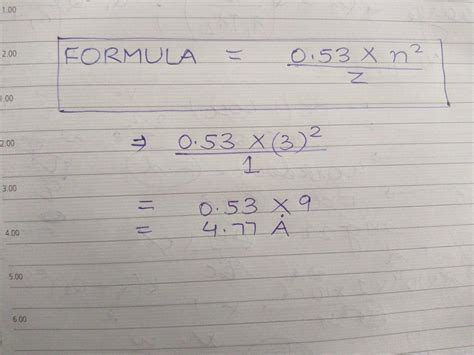 1.00
2.00 FORMULA = 0.53 X n²
z
1.00
2.00 ⇒ 0.53 X (3)²
1
3.00 = 0.53 X 9
4.00 = 4.77 Å
5.00
6.00